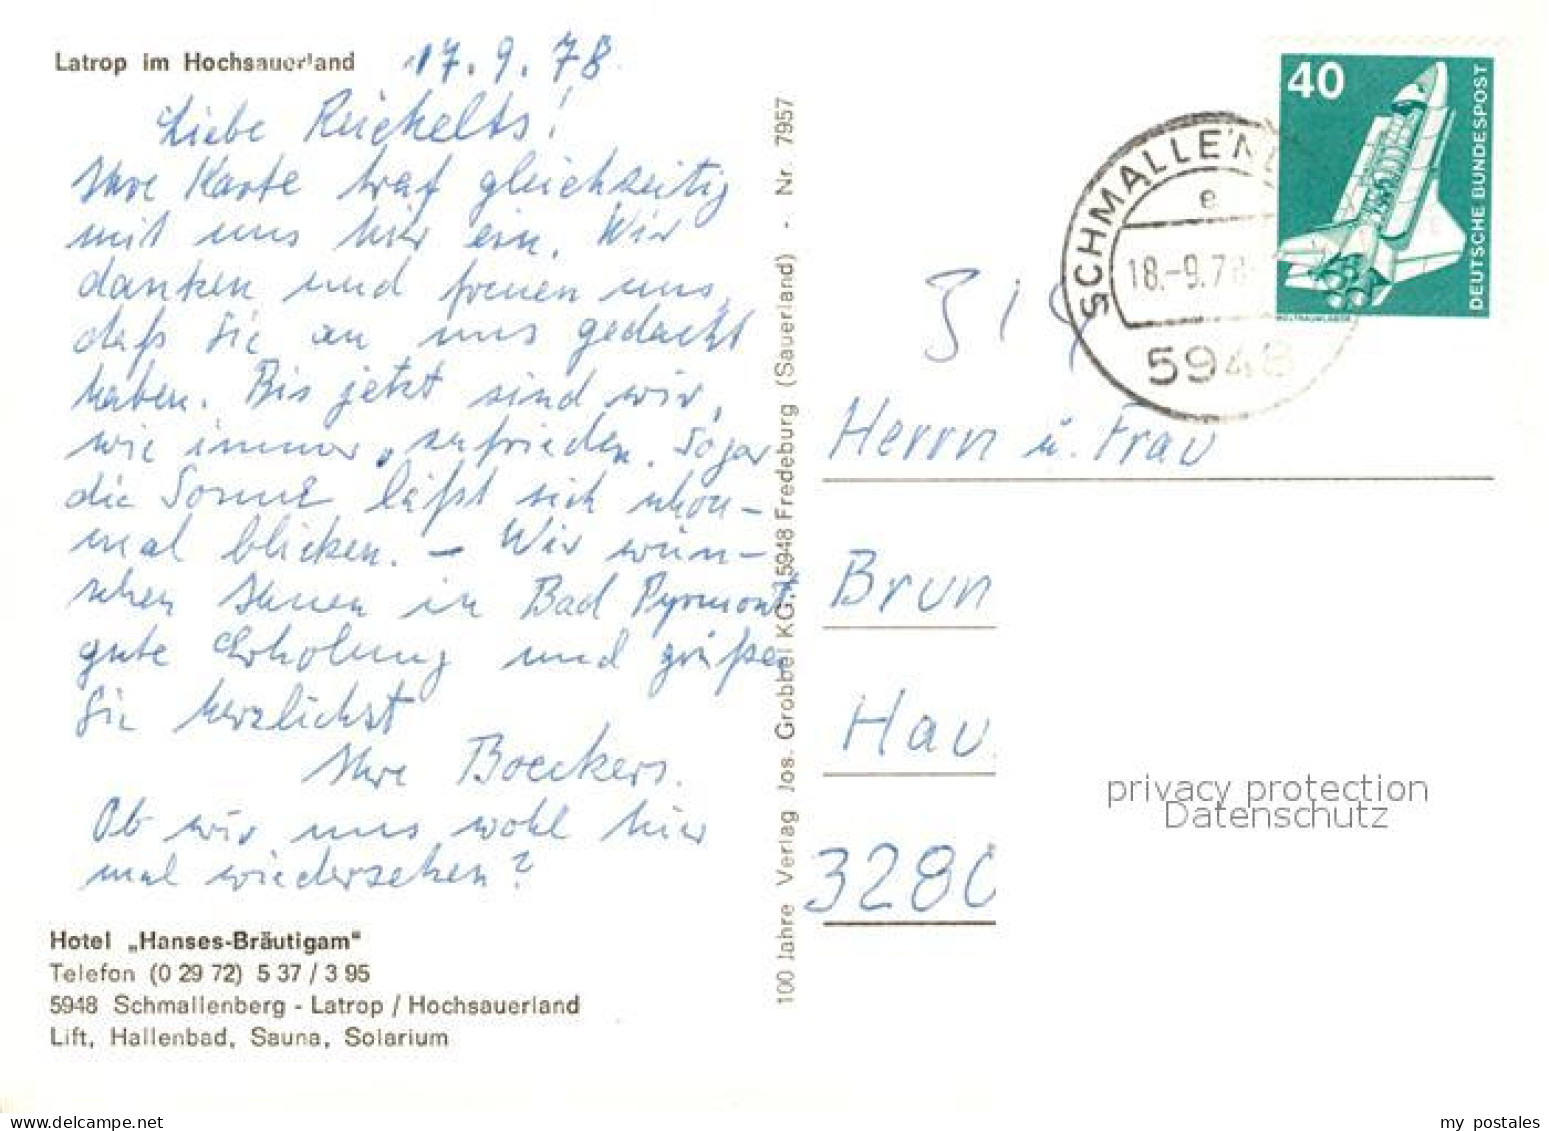 Latrop im Hochsauerland 17.9.78
Liebe Reichelts!
Ihre Karte traf gleichzeitig
mit uns hier ein. Wir
danken und freuen uns,
daß Sie an uns gedacht
haben. Bis jetzt sind wir,
wie immer, zufrieden. Sogar
die Sonne läßt sich schon-
mal blicken. – Wir wün-
schen Ihnen in Bad Pyrmont
gute Erholung und grüßen
Sie herzlichst
Ihre Boeckers.
Ob wir uns wohl hier
mal wiedersehen?
Hotel „Hanses-Bräutigam"
Telefon (0 29 72) 5 37 / 3 95
5948 Schmallenberg - Latrop / Hochsauerland
Lift, Hallenbad, Sauna, Solarium
100 Jahre Verlag Jos. Grobbel KG, 5948 Fredeburg (Sauerland) - Nr. 7957
SCHMALLEN
e
18.-9.78
5948
40
DEUTSCHE BUNDESPOST
WELTRAUMLABOR
Herrn u. Frau
Brun
Hau
3280
privacy protection
Datenschutz
my postales